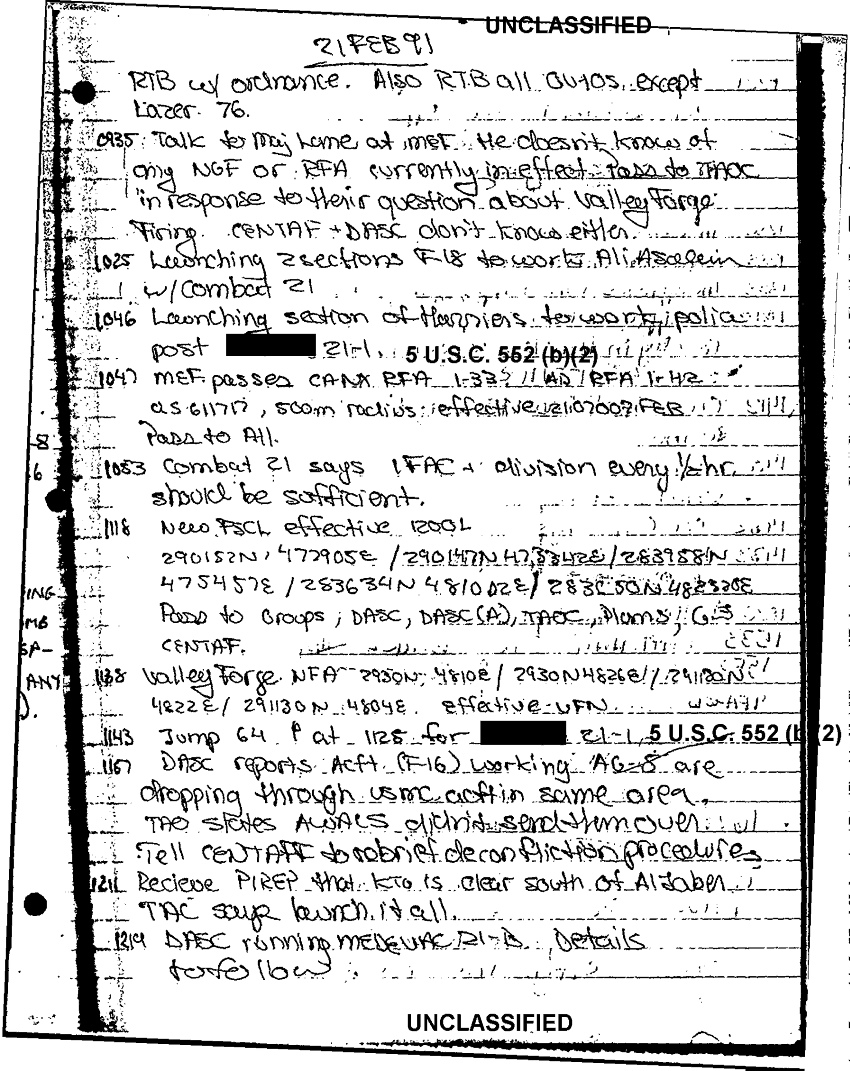 UNCLASSIFIED
21 FEB 91
RTB w/ ordnance. Also RTB all autos except
Lazer 76.
0935 Talk to Maj at MEF. He doesn't know of
any NGF or RFA currently in effect. Pass to TAOC
in response to their question about Valley Forge
Firing. CENTAF + DASC don't know either.
1025 Launching 2 sections F-18 to work Ali
w/ Combat 21
1046 Launching section of Harriers to work police
post 21-1. 5 U.S.C. 552 (b)(2)
1047 MEF passes CANX RFA 1-33? // AD RFA 1-42
QS 611717, 500m radius effective FEB
Pass to All.
-8
6
1053 Combat 21 says 1 FAC + division every 1/2 hr
should be sufficient.
1118 New FSCL effective 1200L
290152N 477905E / 290147N / 283958N
475457E / 283634N 481002E /
ING
MB
Pass to Groups, DASC, DASC(A), TAOC, Plans, G-3
SA-
CENTAF.
ANY
1138 Valley Forge NFA 2930N 4810E / 2930N 4826E / 291130N
).
4822E / 291130N 4804E. Effective UFN
1143 Jump 64 P at 1128 for 21-1, 5 U.S.C. 552 (b)(2)
DASC reports Acft (F-16) working AG-8 are
dropping through USMC acft in same area.
TAO states AWACS didn't send them over.
Tell CENTAF to rebrief deconfliction procedures
1211 Recieve PIREP that KTO is clear south of Al Jaber
TAC says launch it all.
1219 DASC running MEDEVAC 21-B Details
to follow
UNCLASSIFIED